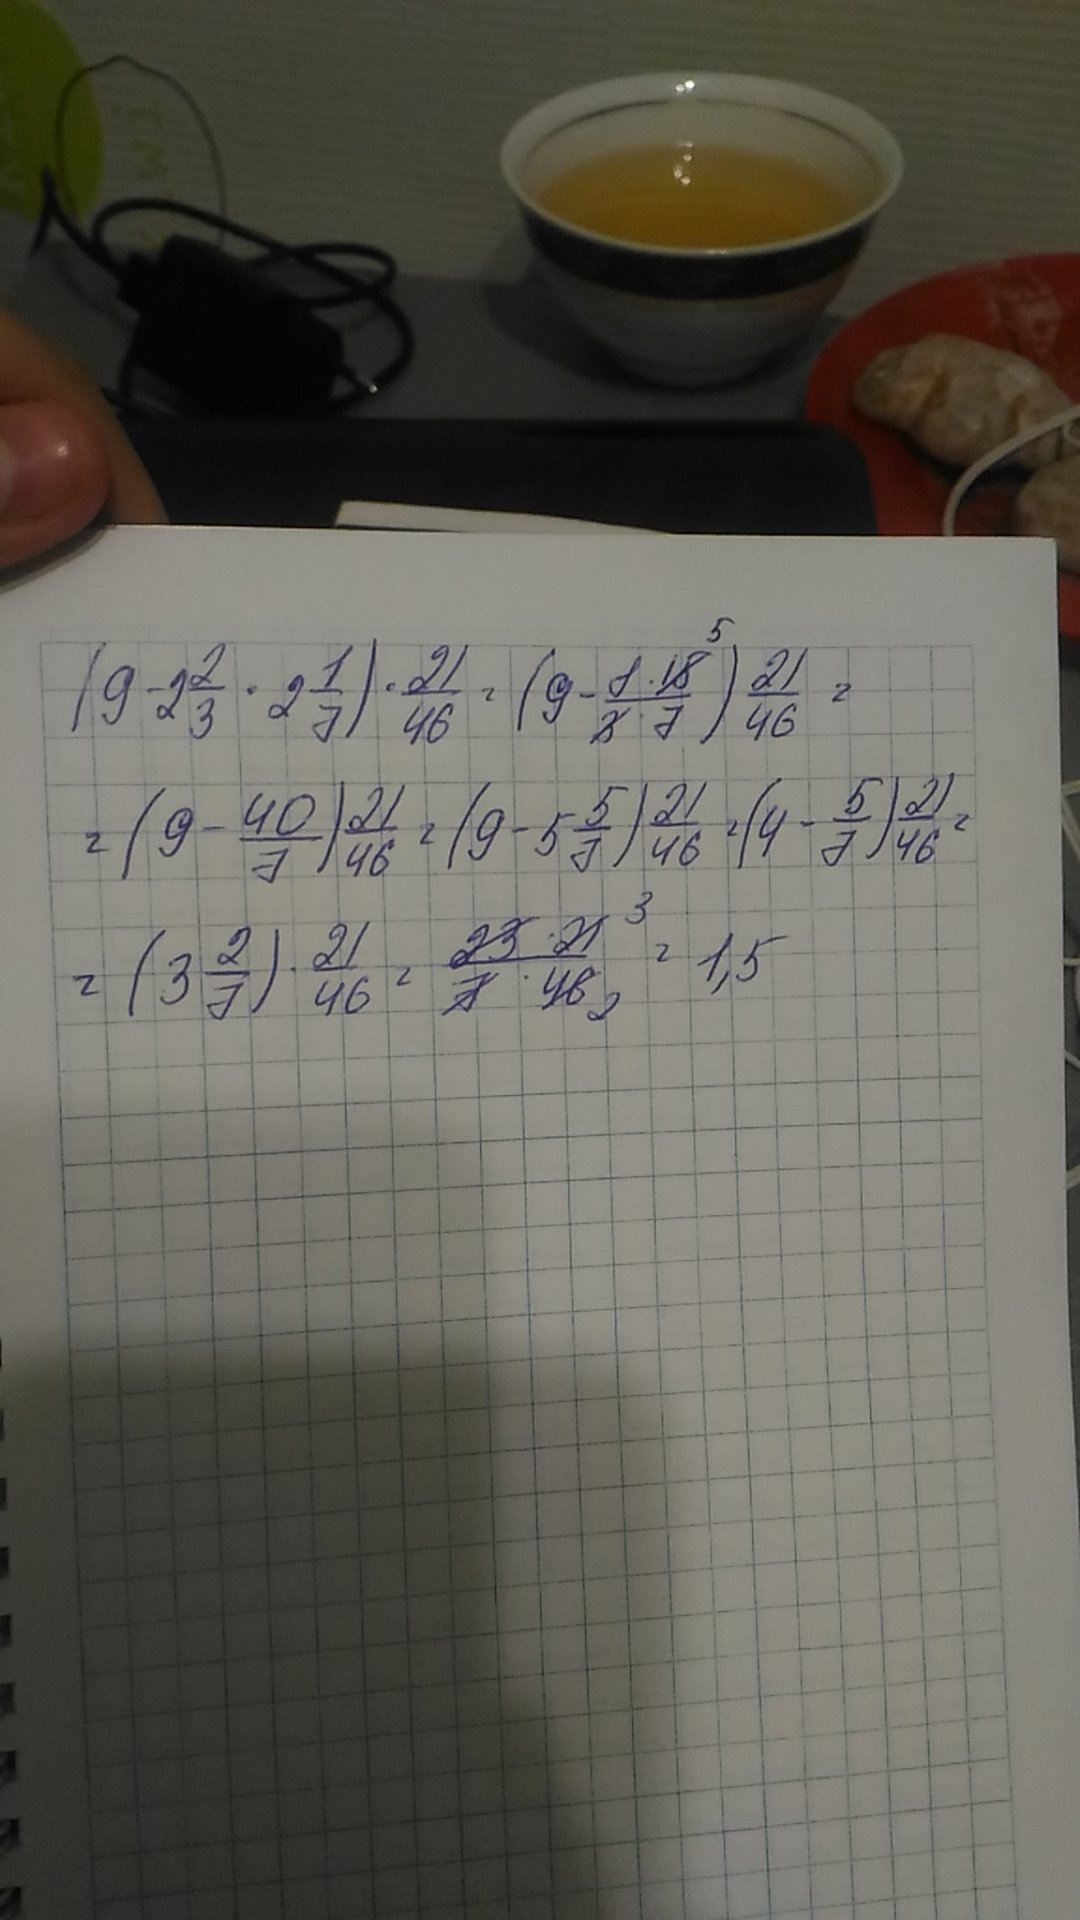 (9 - 2 2/3 · 2 1/7) · 21/46 = (9 - 8·15 5/3·7) 21/46 =
= (9 - 40/7) 21/46 = (9 - 5 5/7) 21/46 = (4 - 5/7) 21/46 =
= (3 2/7) · 21/46 = 23·21 3/7·46 2 = 1,5